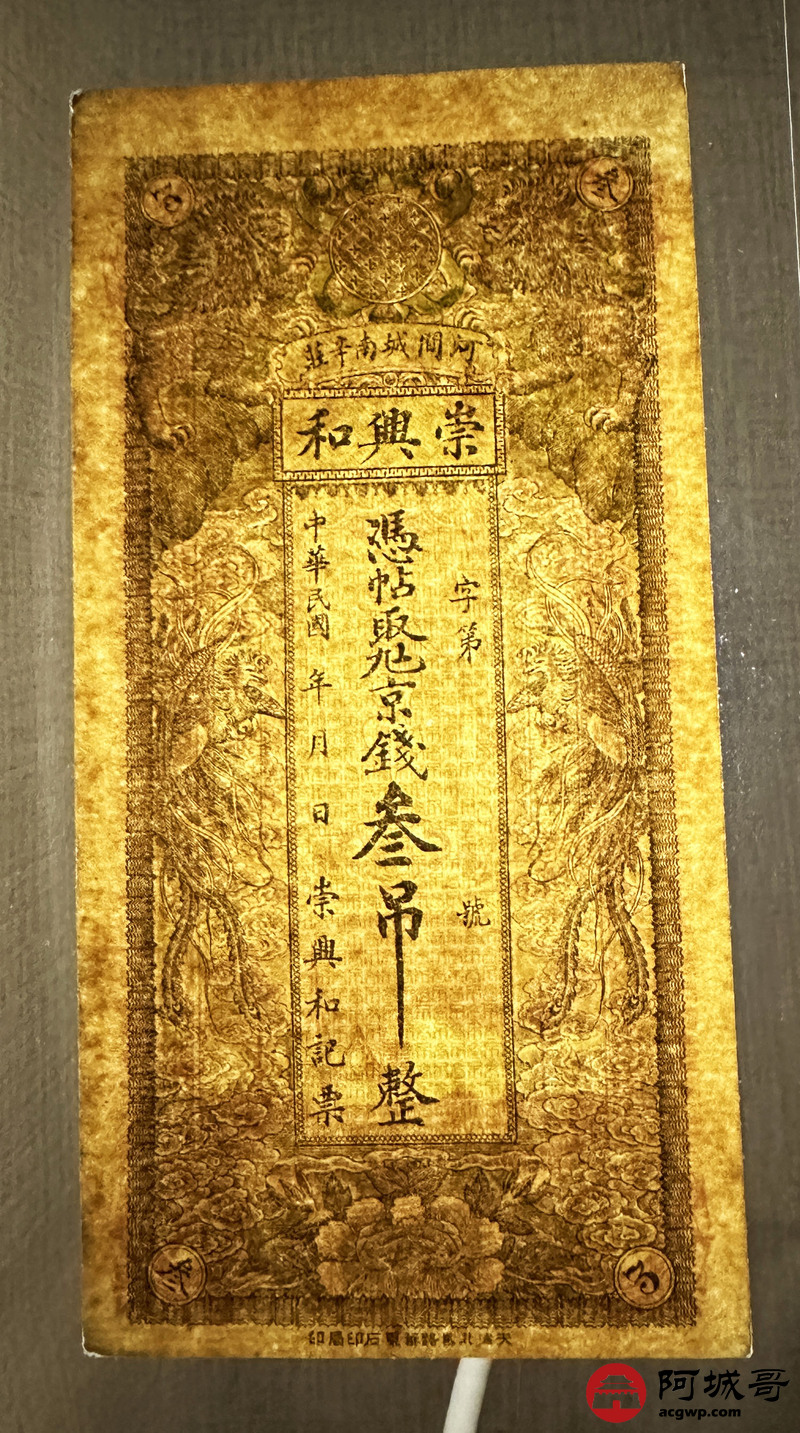 河間城南辛莊
崇興和
字第 號
憑帖取兌京錢叁吊整
中華民國 年 月 日 崇興和記票
天津北馬路 東石印局印
阿城哥
acgwp.com